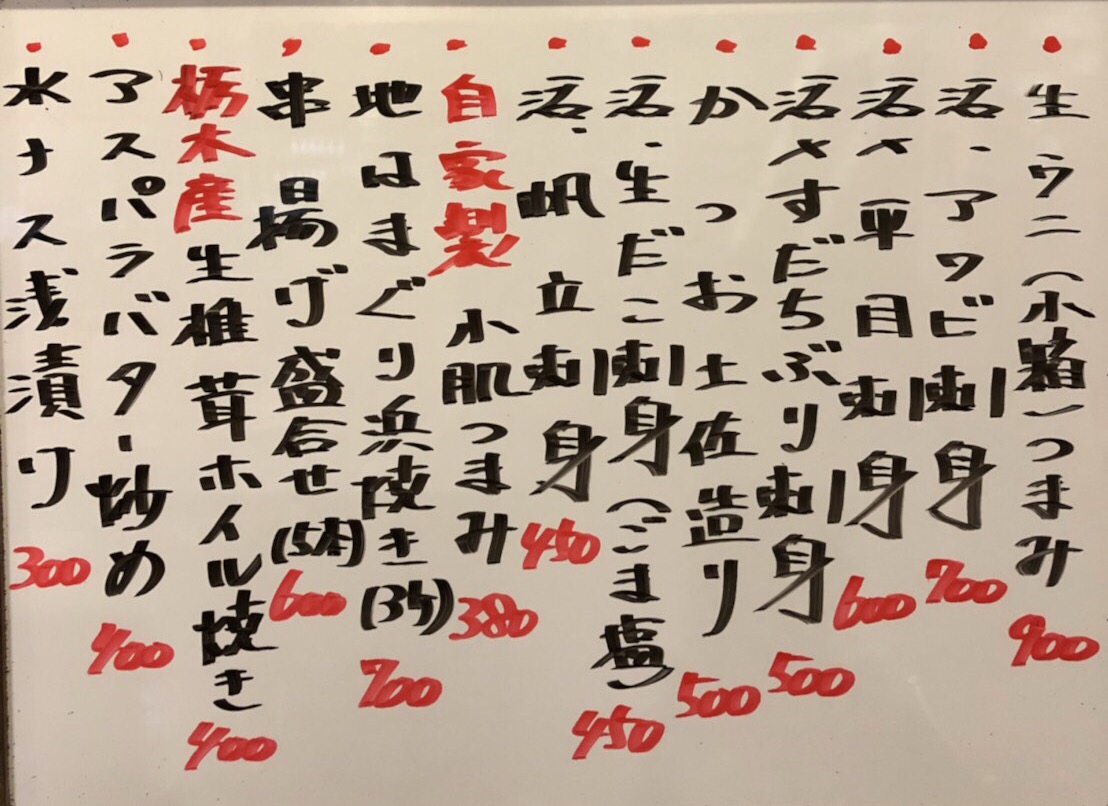 ・生ウニ(小箱)つまみ 900
・活、アワビ刺身 700
・活〆平目刺身 600
・活〆すだちぶり刺身 500
・かつお土佐造り 500
・活、生だこ刺身(ごま塩) 450
・活、帆立刺身 450
・自家製 小肌つまみ 380
・地はまぐり浜焼き(3ケ) 700
・串揚げ盛合せ(5本) 600
・栃木産生椎茸ホイル焼き 400
・アスパラバター炒め 400
・水ナス浅漬り 300